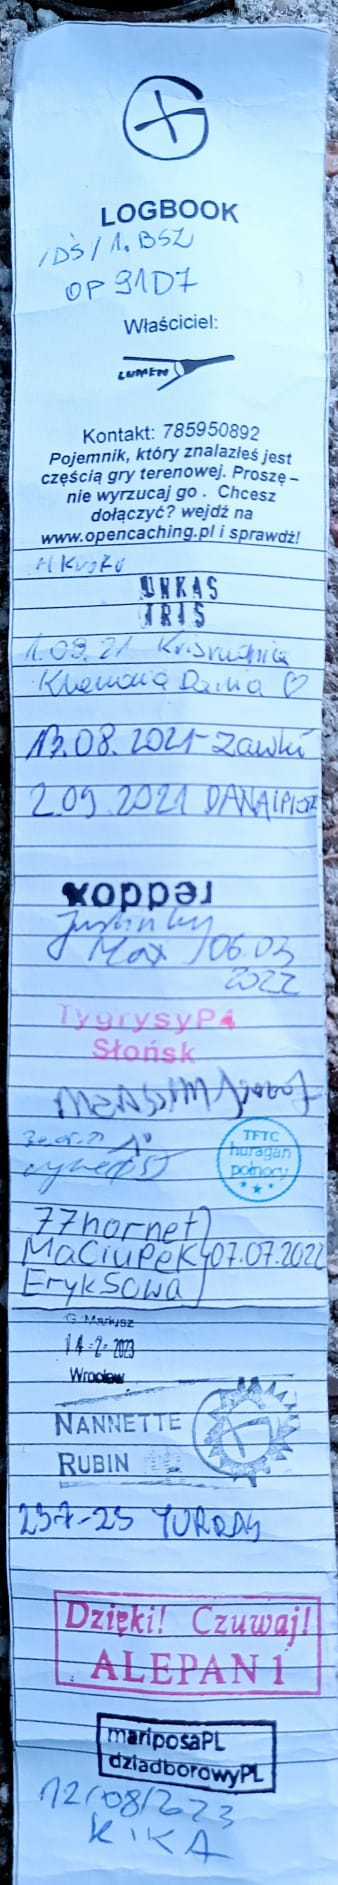 LOGBOOK
/DŚ/1.BSZ
OP91D7
Właściciel:
LUMEN
Kontakt: 785950892
Pojemnik, który znalazłeś jest
częścią gry terenowej. Proszę –
nie wyrzucaj go . Chcesz
dołączyć? wejdź na
www.opencaching.pl i sprawdź!
UNKAS
IRIS
1.09.21
Daria ♡
13.08.2021 Zawki
2.09.2021
reddox
Max 06.03
2022
TygrysyP4
Słońsk
TFTC
huragan
północy
77hornet
MaCiupeK 07.07.2022
ErykSowa
G. Mariusz
14-2-2023
Wrocław
NANNETTE
RUBIN
Dzięki! Czuwaj!
ALEPAN1
mariposaPL
dziadborowyPL
12/08/2023
KIKA